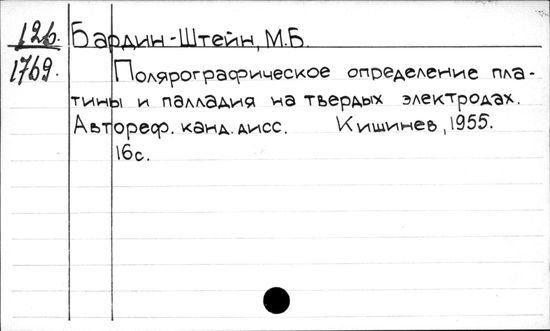 126.
1769.
Бардин-Штейн, М.Б.
Полярографическое определение пла-
тины и палладия на твердых электродах.
Автореф. канд. дисс. Кишинев, 1955.
16с.